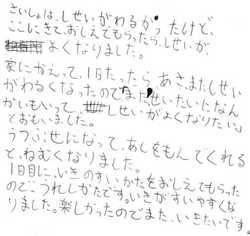 さいしょは、しせいがわるかったけど、
ここにきて、おしえてもらったら、しせいが、
よくなりました。
家にかえって、1日たったら、あさ、またしせい
がわるくなったのでまた、せいたいになん
かいもいって、しせいがよくなりたいな
とおもいました。
うつぶせになって、あしをもんでくれる
と、ねむくなりました。
1日目に、いきのすいかたをおしえてもらった
ので、うれしかたです。いきがすいやすくな
りました。楽しかったのでまた、いきたいです。